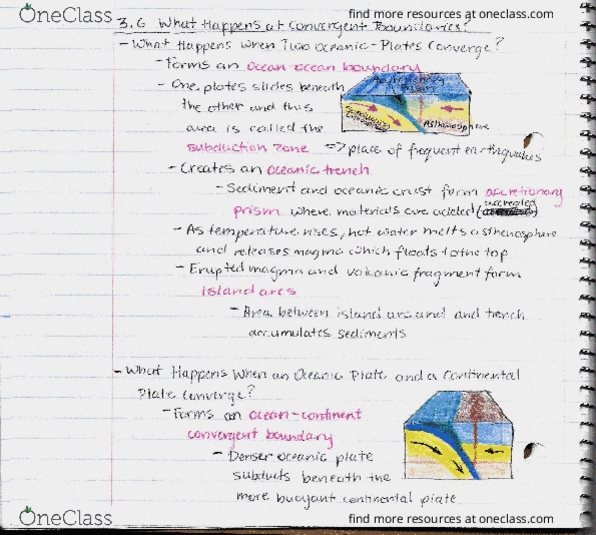 OneClass
find more resources at oneclass.com
3.6 What Happens at Convergent Boundaries?
- What Happens When Two Oceanic-Plates Converge?
- Forms an ocean-ocean boundary
- One plates slides beneath
the other and this
area is called the
subduction zone => place of frequent earthquakes
Asthenosphere
- Creates an oceanic trench
- Sediment and oceanic crust form accretionary
prism where materials are added (accreted)
- As temperature rises, hot water melts asthenosphere
and releases magma which floats to the top
- Erupted magma and volcanic fragment form
island arcs
- Area between island arc and and trench
accumulates sediments
- What Happens When an Oceanic Plate and a Continental
Plate converge?
- Forms an ocean-continent
convergent boundary
- Denser oceanic plate
subducts beneath the
more buoyant continental plate
OneClass
find more resources at oneclass.com